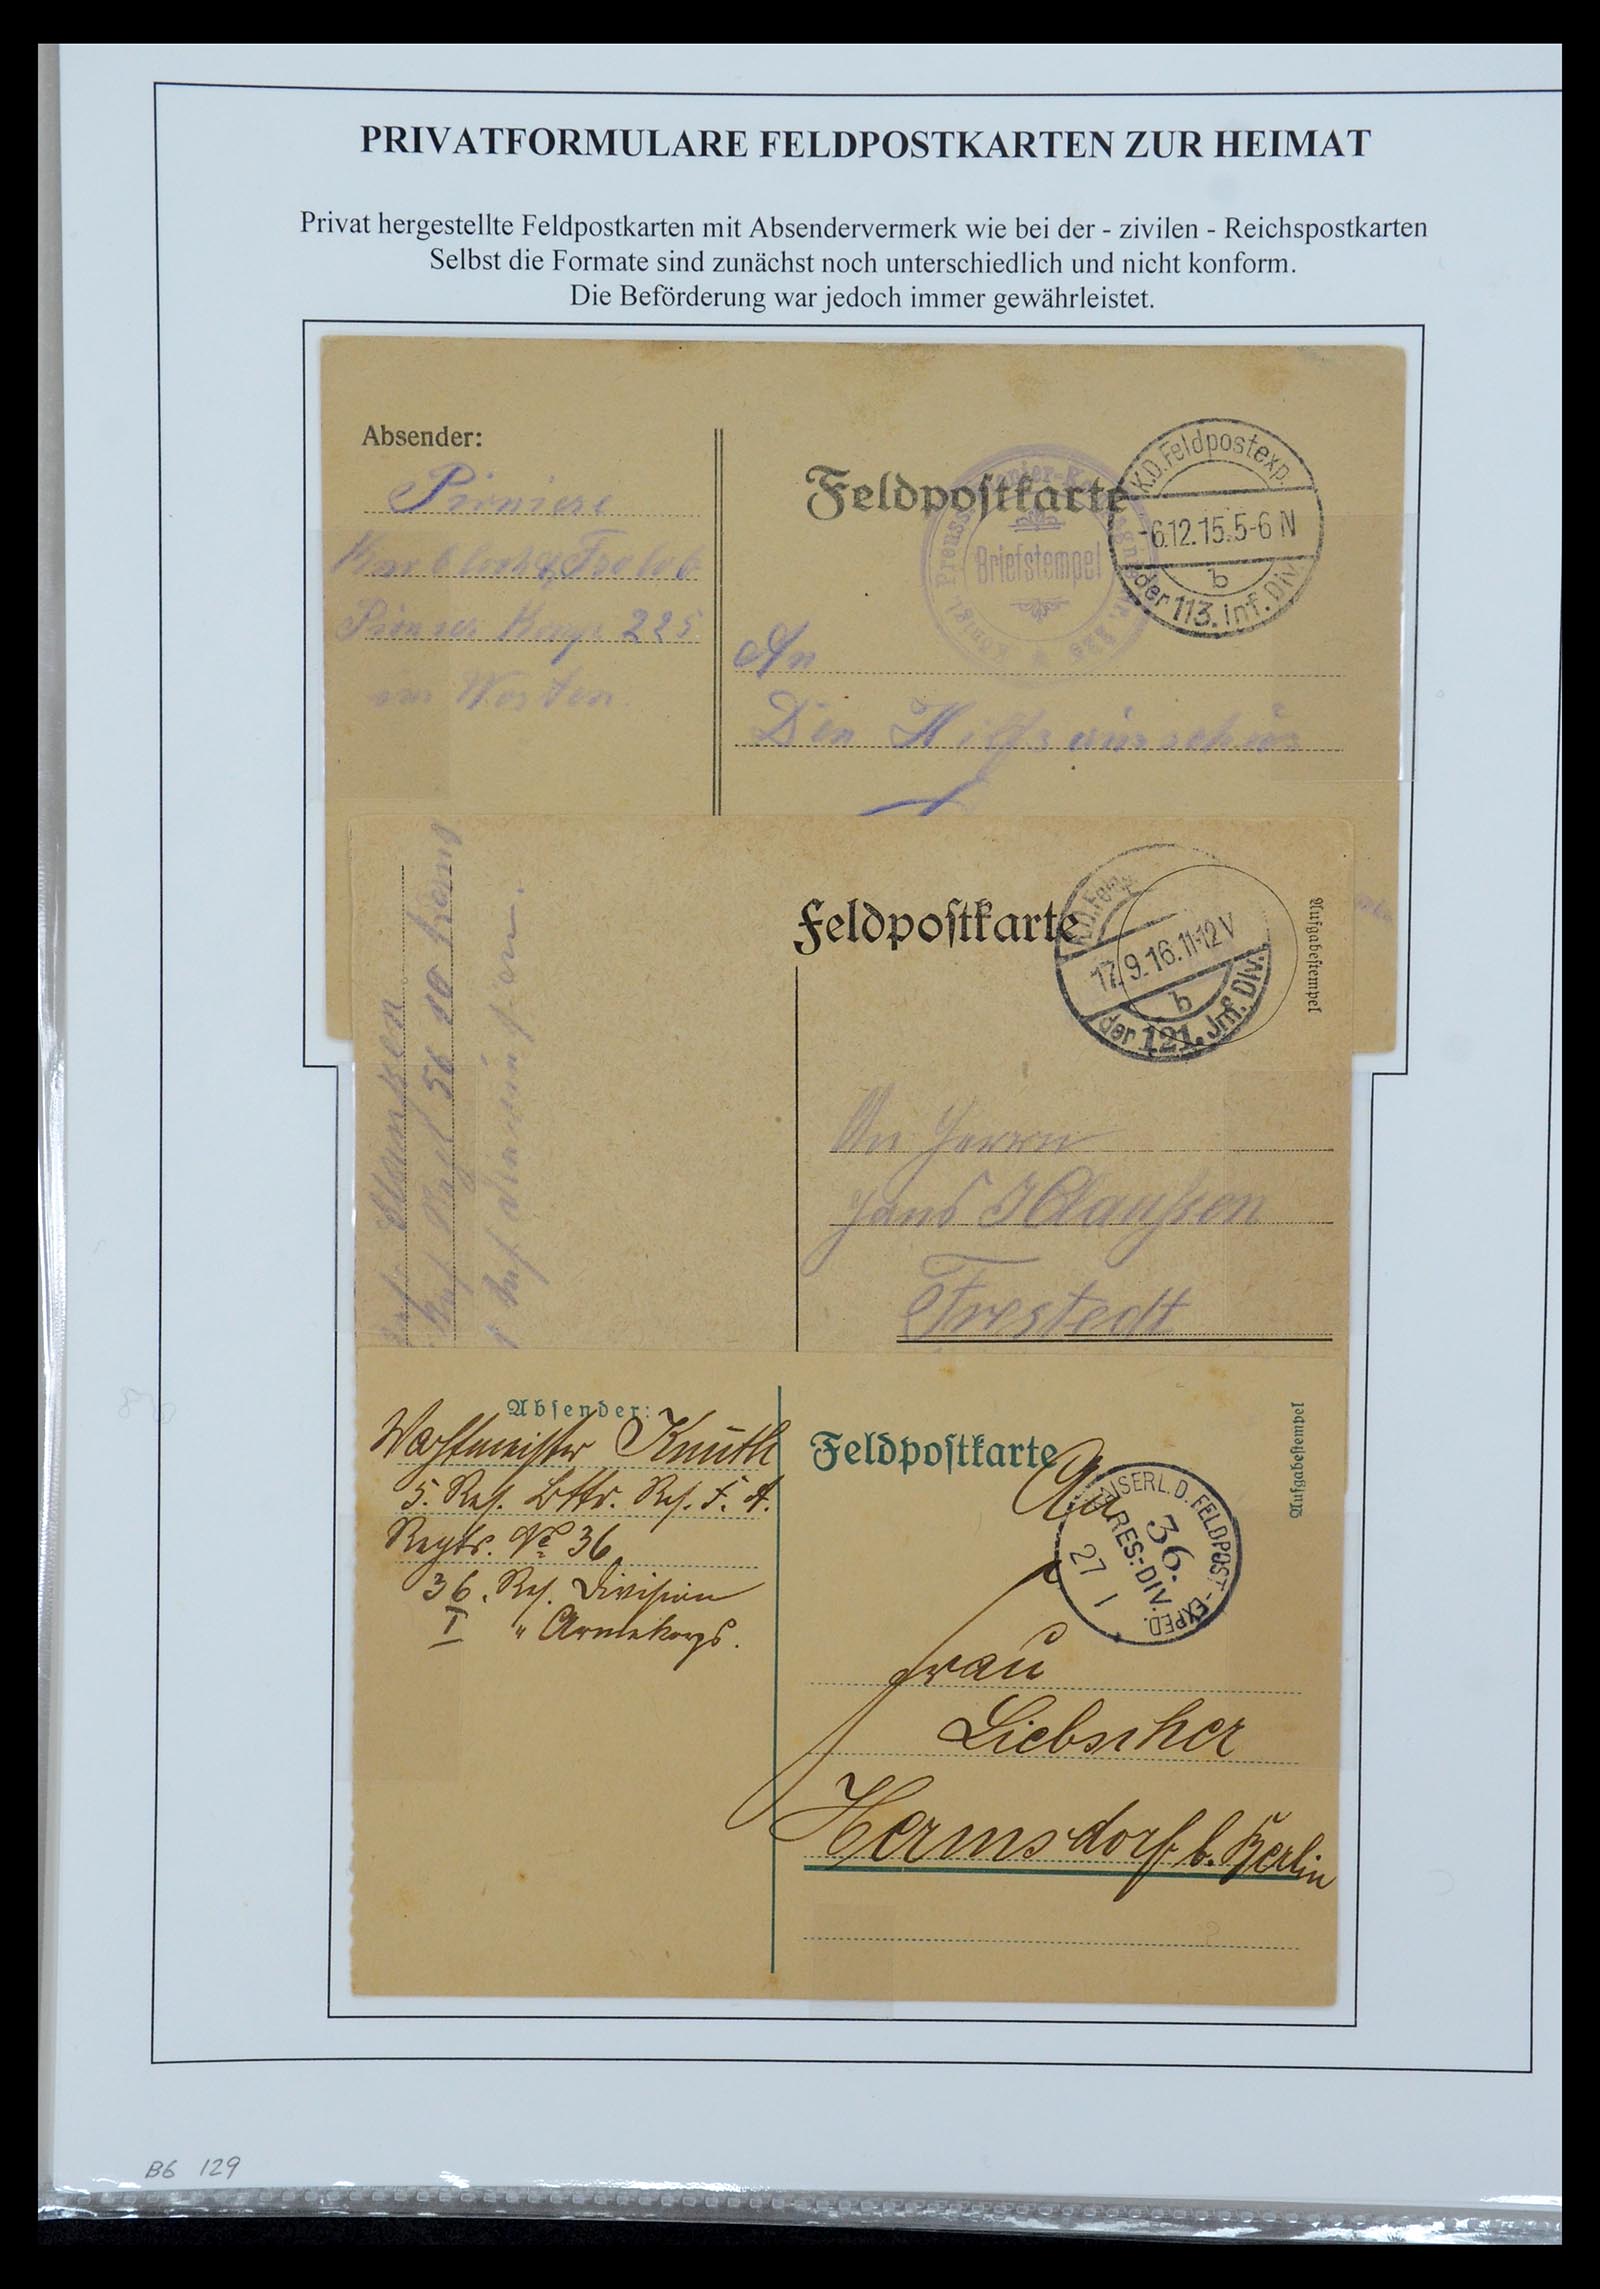 PRIVATFORMULARE FELDPOSTKARTEN ZUR HEIMAT
Privat hergestellte Feldpostkarten mit Absendervermerk wie bei der - zivilen - Reichspostkarten
Selbst die Formate sind zunächst noch unterschiedlich und nicht konform.
Die Beförderung war jedoch immer gewährleistet.
Absender:
Pioniere
Pionier Komp. 225
im Westen
Feldpostkarte
Briefstempel
K.D. Feldpostexp.
-6.12.15.5-6 N
b
der 113. Inf. Div.
An
Den Hilfsausschus
Claußen
Feldpostkarte
17.9.16.11-12V
b
der 121. Inf. Div.
Aufgabestempel
An Herrn
Hans Claußen
Frestedt
Absender:
Wachtmeister Knuth
5. Res. Bttr. Res. F. A.
Regts. No 36
36. Res. Division
I " Armeekorps.
Feldpostkarte
KAISERL. D. FELDPOST-EXPED.
36.
RES.-DIV.
27 1
Aufgabestempel
An
Frau
Liebscher
Hermsdorf b. Berlin
B6 129